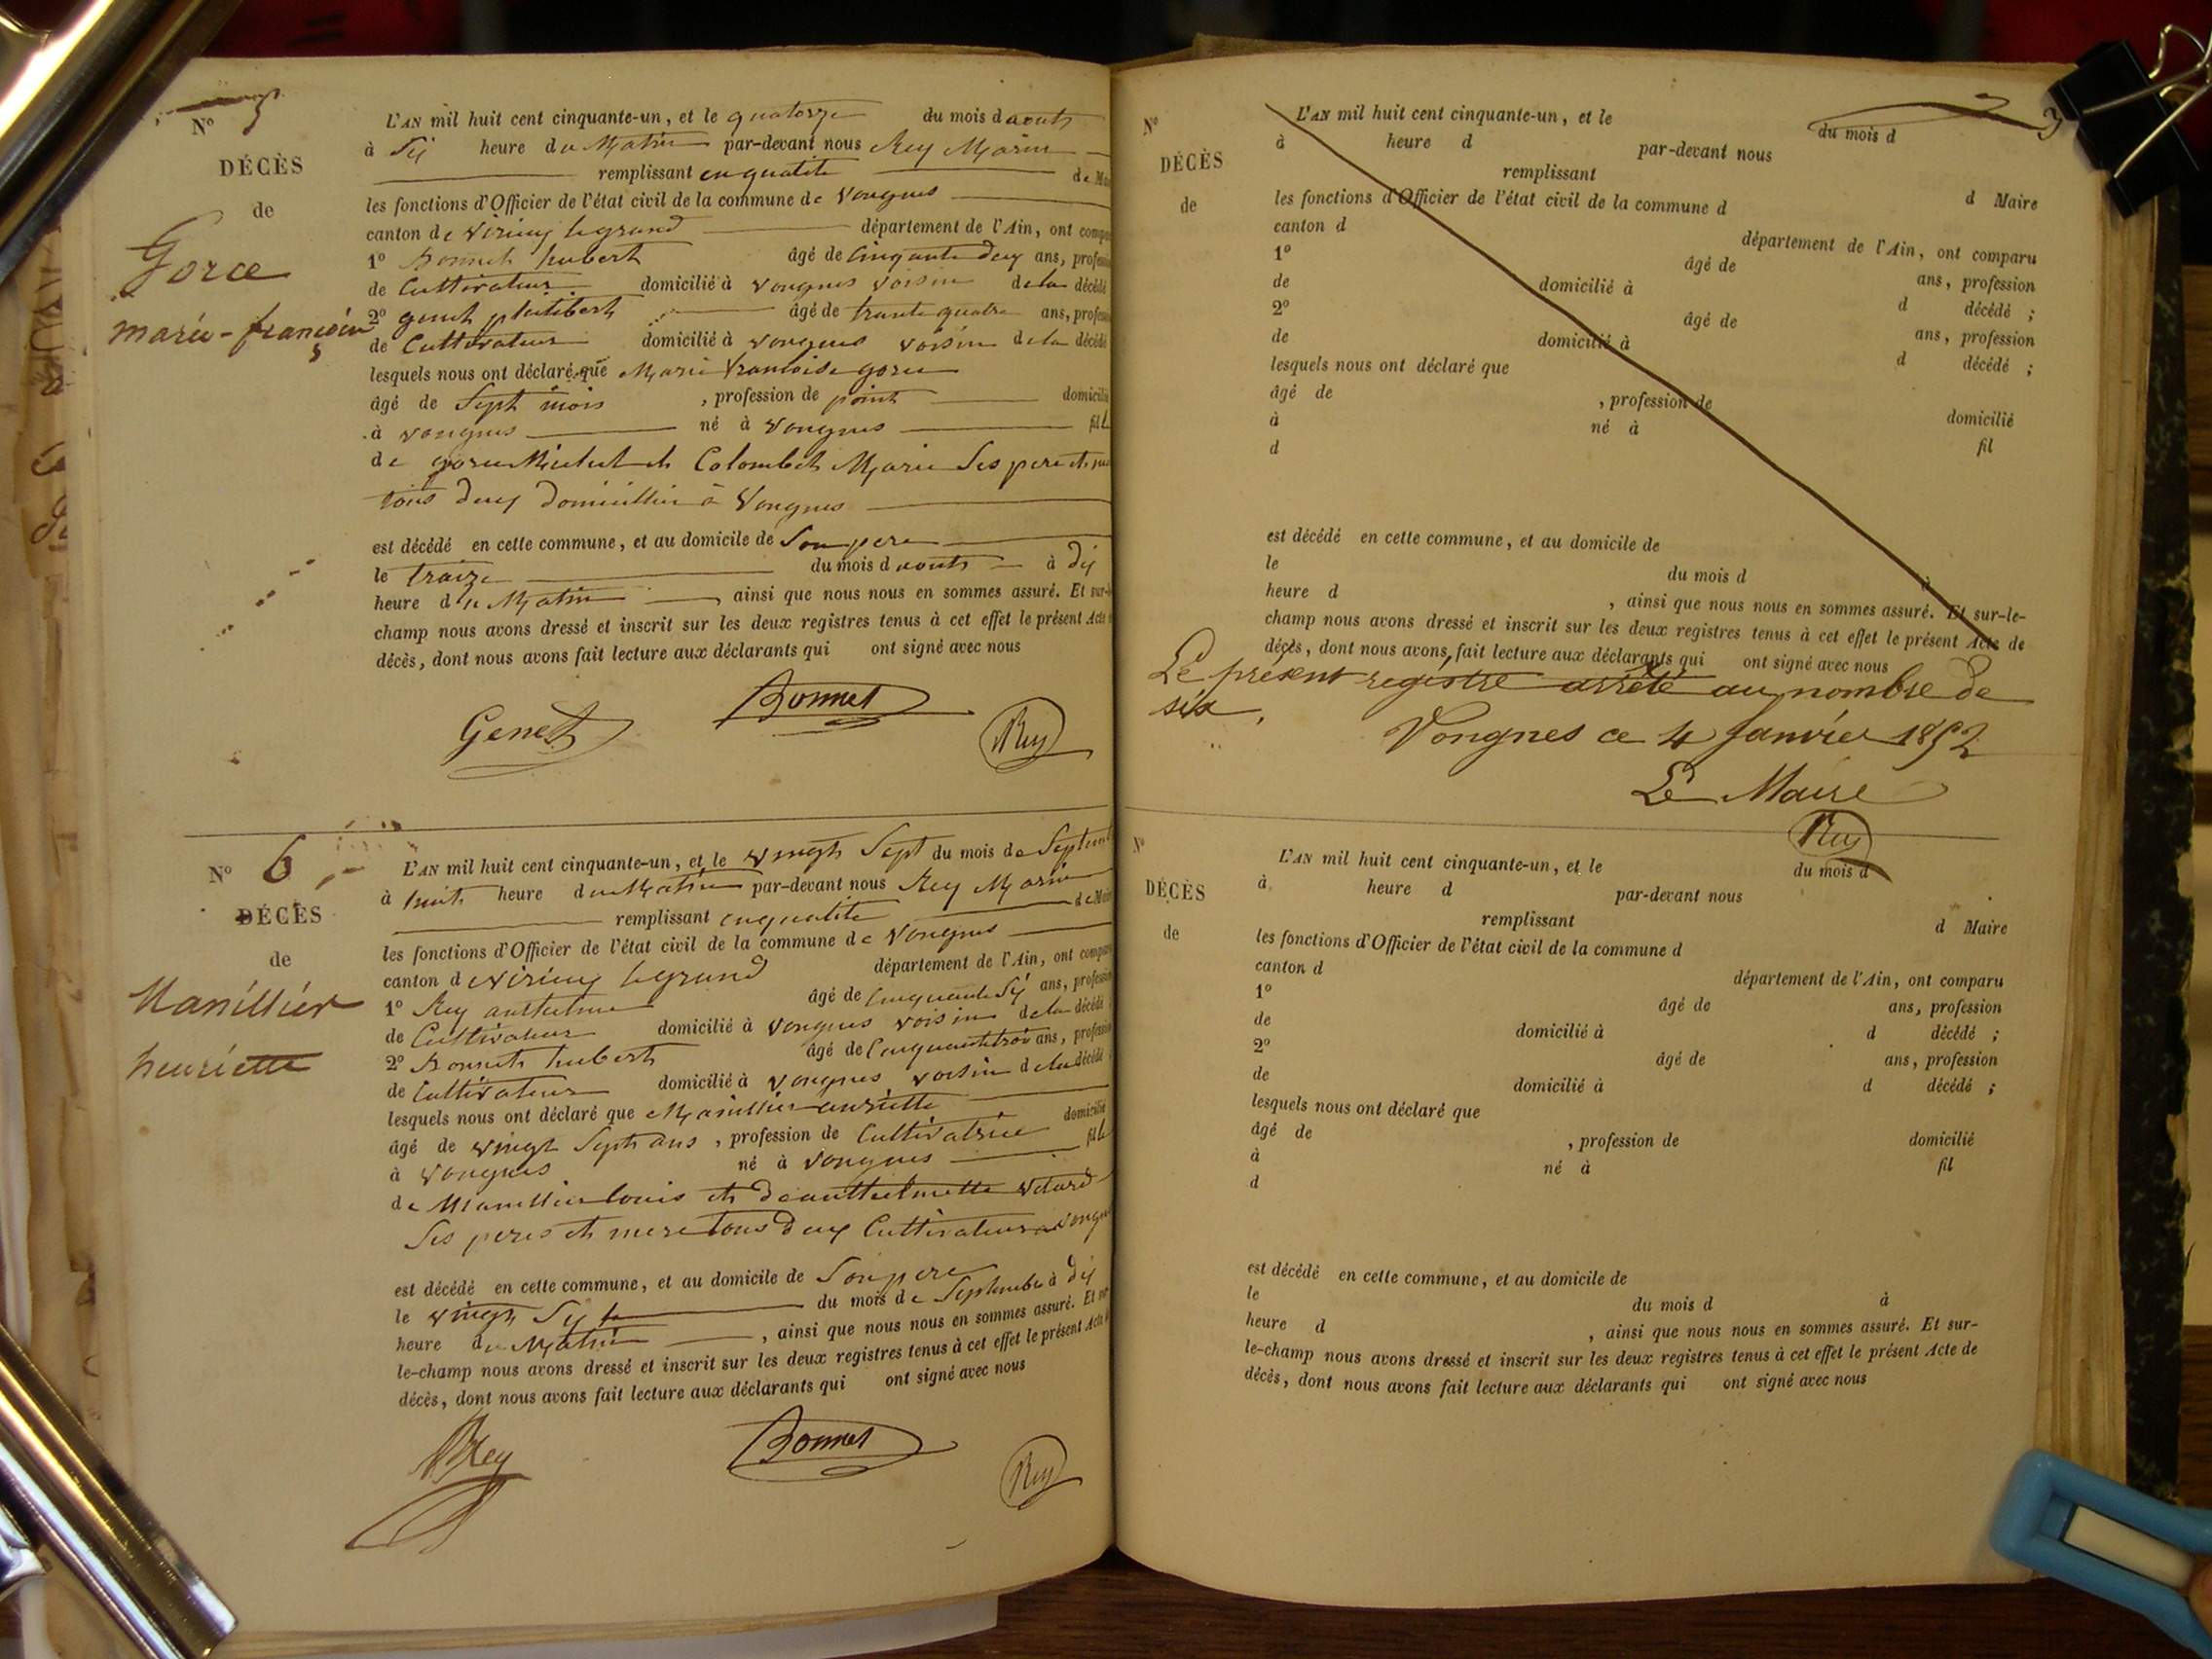 N° 5
DÉCÈS
de
Gorce
marie-françoise
L'AN mil huit cent cinquante-un, et le quatorze du mois d aouts
à Six heure du Matin par-devant nous Rey Marin
remplissant en qualité de Mai
les fonctions d'Officier de l'état civil de la commune de Vongnes
canton de Virieu le grand département de l'Ain, ont compa
1° Bonnet hubert âgé de Cinquante deux ans, profes
de Cultivateur domicilié à Vongnes voisin de la décédé
2° genet philibert âgé de trante quatre ans, profes
de Cultivateur domicilié à Vongnes voisin de la décédé
lesquels nous ont déclaré que Marie francoise gorce
âgé de Sept mois , profession de point domicilié
à vongnes né à Vongnes fille
de gorce Michel et Colombet Marie Ses pere et me
tous deux domicillier à Vongnes
est décédé en cette commune, et au domicile de Son pere
le traize du mois d aouts à dix
heure du Matin ainsi que nous nous en sommes assuré. Et sur-le-
champ nous avons dressé et inscrit sur les deux registres tenus à cet effet le présent Acte
décès, dont nous avons fait lecture aux déclarants qui ont signé avec nous
Genet Bonnet Rey
N° 6
DÉCÈS
de
Manillier
henriette
L'AN mil huit cent cinquante-un, et le vingt Sept du mois de Septem
à huit heure du Matin par-devant nous Rey Marin
remplissant en qualité de Mai
les fonctions d'Officier de l'état civil de la commune de Vongnes
canton de Virieu le grand département de l'Ain, ont compa
1° Rey anthelme âgé de Cinquante Six ans, profession
de Cultivateur domicilié à Vongnes voisin de la décédé
2° Bonnet hubert âgé de Cinquante trois ans, profession
de Cultivateur domicilié à Vongnes voisin de la décédé
lesquels nous ont déclaré que Manillier enriette
âgé de vingt Sept ans , profession de Cultivatrice domicilié
à Vongnes né à Vongnes fille
de Manillier Louis et d'anthelmette
Ses peres et mere tous deux Cultivateur a Vongn
est décédé en cette commune, et au domicile de Son pere
le vingt Six du mois de Septembre à dix
heure du Matin , ainsi que nous nous en sommes assuré. Et sur
le-champ nous avons dressé et inscrit sur les deux registres tenus à cet effet le présent Acte
décès, dont nous avons fait lecture aux déclarants qui ont signé avec nous
Rey Bonnet Rey
N°
DÉCÈS
de
L'AN mil huit cent cinquante-un, et le du mois d
à heure d par-devant nous
remplissant d Maire
les fonctions d'Officier de l'état civil de la commune d
canton d département de l'Ain, ont comparu
1° âgé de ans, profession
de domicilié à d décédé ;
2° âgé de ans, profession
de domicilié à d décédé ;
lesquels nous ont déclaré que
âgé de , profession de domicilié
à né à fil
d
est décédé en cette commune, et au domicile de
le du mois d à
heure d , ainsi que nous nous en sommes assuré. Et sur-le-
champ nous avons dressé et inscrit sur les deux registres tenus à cet effet le présent Acte de
décès, dont nous avons fait lecture aux déclarants qui ont signé avec nous
Le présent registre arrêté au nombre de
six,
Vongnes ce 4 Janvier 1852
Le Maire
Rey
N°
DÉCÈS
de
L'AN mil huit cent cinquante-un, et le du mois d
à heure d par-devant nous
remplissant d Maire
les fonctions d'Officier de l'état civil de la commune d
canton d département de l'Ain, ont comparu
1° âgé de ans, profession
de domicilié à d décédé ;
2° âgé de ans, profession
de domicilié à d décédé ;
lesquels nous ont déclaré que
âgé de , profession de domicilié
à né à fil
d
est décédé en cette commune, et au domicile de
le du mois d à
heure d , ainsi que nous nous en sommes assuré. Et sur-
le-champ nous avons dressé et inscrit sur les deux registres tenus à cet effet le présent Acte de
décès, dont nous avons fait lecture aux déclarants qui ont signé avec nous